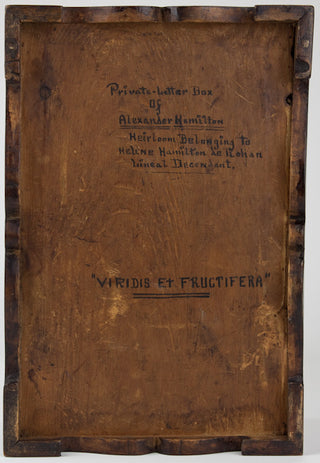 Private-Letter Box
Of
Alexander Hamilton
Heirloom Belonging to
Helene Hamilton de Rohan
Lineal Decendent.
"VIRIDIS Et FRUCTIFERA"